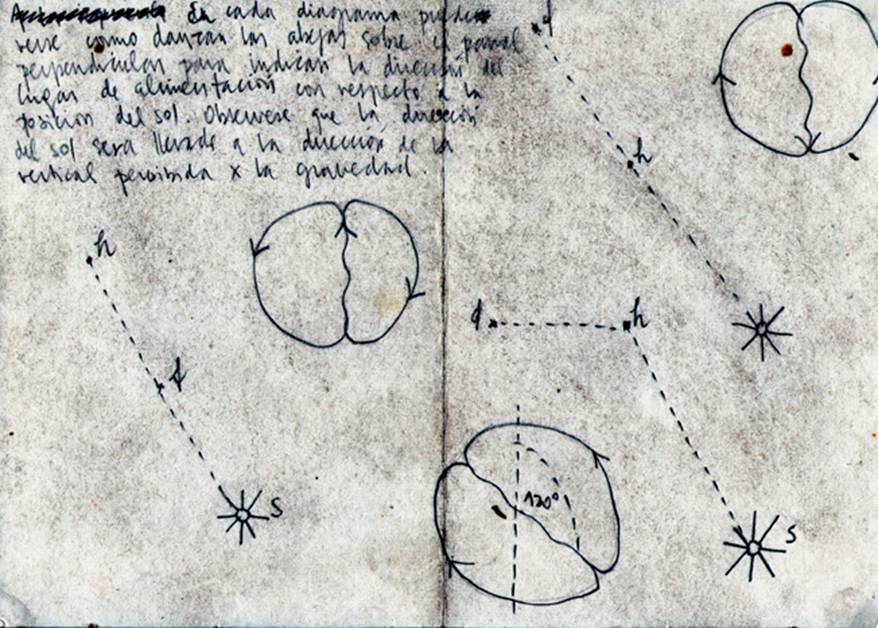 En cada diagrama puede
verse como danzan las abejas sobre el panal
perpendicular para indican la dirección del
lugar de alimentación con respecto a la
posicion del sol. Observese que la dirección
del sol sera llevada a la dirección de la
vertical percibida x la gravedad.
f
h
h
f
s
f
h
120°
s